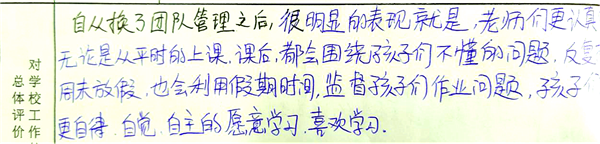 对学校工作的
总体评价
自从换了团队管理之后,很明显的表现就是,老师们更认真
无论是从平时的上课.课后,都会围绕孩子们不懂的问题.反复
周末放假.也会利用假期时间,监督孩子们作业问题,孩子们
更自律.自觉.自主的愿意学习.喜欢学习.